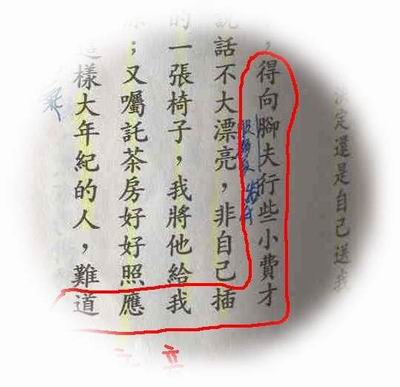 決定還是自己送我
，得向腳夫行些小費才
說話不大漂亮，非自己插
的一張椅子，我將他給我
；又囑託茶房好好照應
這樣大年紀的人，難道
立